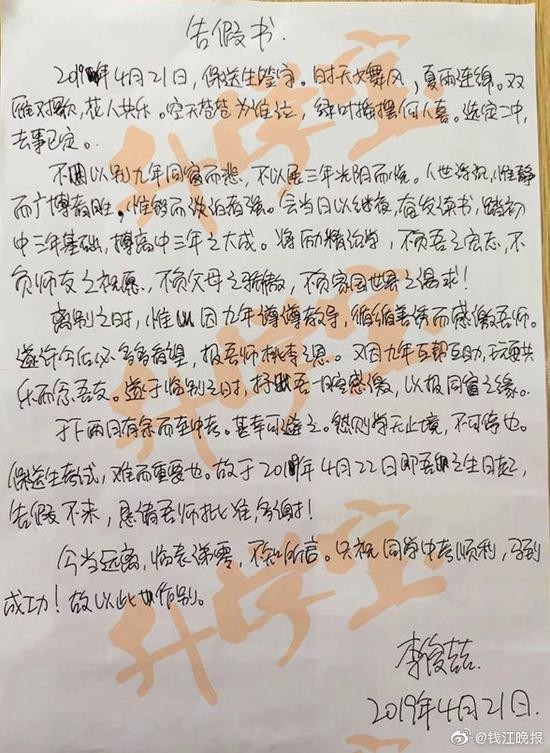 告假书.
2019年4月21日,保送生签字。时天大舞风,夏雨连绵。双
雁对撒欢,花人共乐。空天苍苍为谁泣,绿叶摇摆何人喜。选定二中,
去事已定。
不因以别九年同窗而悲,不以展三年光阴而悦。人世浮沉,惟静
而广博者胜,惟韧而淡泊者强。会当日以继夜,奋发读书,踏初
中三年基础,搏高中三年之大成。将励精治学,不负吾之宏志,不
负师友之祝愿,不负父母之骄傲,不负家国世界之渴求!
离别之时,惟以因九年谆谆教导,循循善诱而感激吾师。
遂许今后必多多看望,报吾师桃李之恩。又因九年互帮互助,玩耍共
乐而念吾友。遂于临别之时,抒我吾一腔感激,以报同窗之缘。
于下两月有余而至中考。甚幸可避之。然则学无止境,不可停也。
保送生考试,难而重要也。故于2019年4月22日即吾之生日起,
告假不来,恳请吾师批准,多谢!
今当远离,临表涕零,不知所言。只祝同学中考顺利,马到
成功!故以此作别。
李俊喆.
2019年4月21日.
升学宝
升学宝
升学宝
升学宝
@钱江晚报